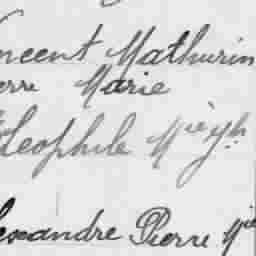 incent Mathurin
erre Marie
Théophile
lexandre Pierre